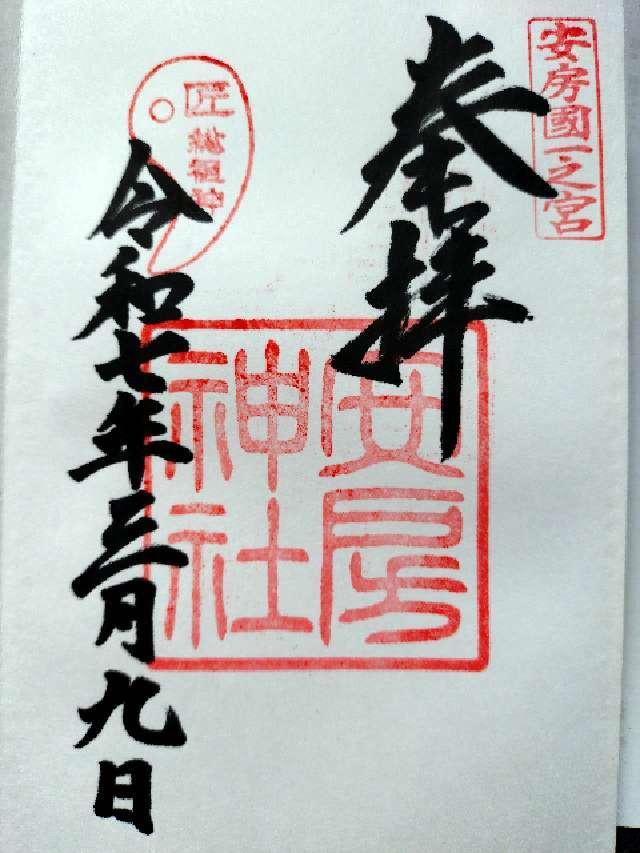 安房國一之宮
奉拝
安房
神社
匠
総祖神
令和七年三月九日